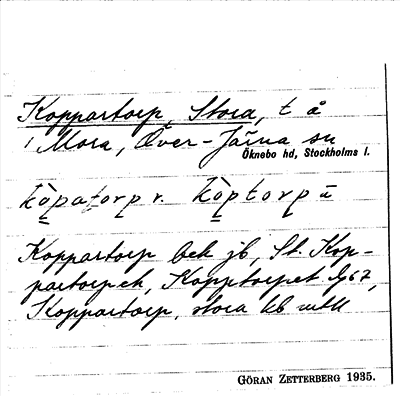 Koppartorp, Stora, t å
1 Mora, Över-Järna sn
Öknebo hd, Stockholms l.
kòpatorp r. kòptorp ū
Koppartorp bek jb, St. Kop-
partorp ek, Kopptorpet
Koppartorp, stora kb mtll
GÖRAN ZETTERBERG 1935.